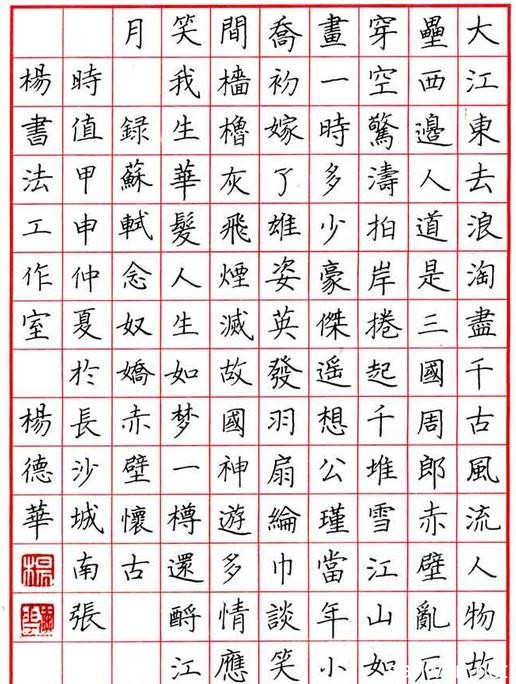 大江東去浪淘盡千古風流人物故
壘西邊人道是三國周郎赤壁亂石
穿空驚濤拍岸捲起千堆雪江山如
畫一時多少豪傑遥想公瑾當年小
喬初嫁了雄姿英發羽扇綸巾談笑
間檣櫓灰飛煙滅故國神遊多情應
笑我生華髮人生如梦一樽還酹江
月 録蘇軾念奴嬌赤壁懷古
時值甲申仲夏於長沙城南張
楊書法工作室 楊德華
楊